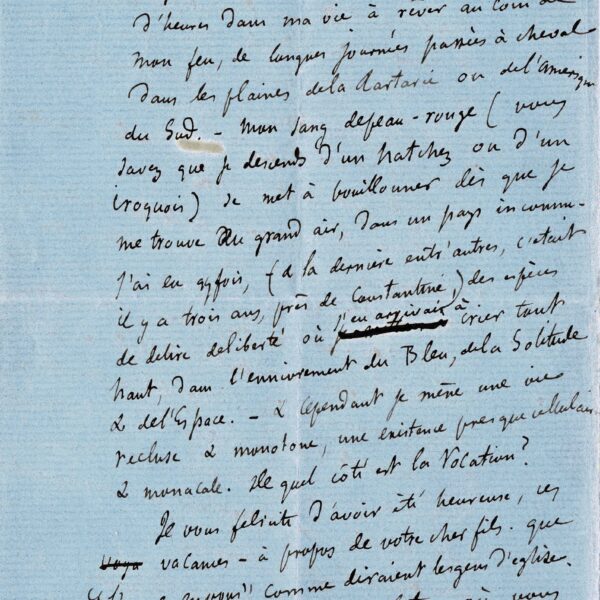 d'heures dans ma vie à rêver au coin de
mon feu, de longues journées passées à cheval
dans les plaines de la Tartarie ou de l'Amérique
du Sud. – Mon sang de peau-rouge (vous
savez que je descends d'un natchez ou d'un
iroquois) se met à bouillonner dès que je
me trouve au grand air, dans un pays inconnu.
J'ai eu qqfois, (& la dernière entr'autres, c'était
il y a trois ans, près de Constantine) des espèces
de délire de liberté où j'en arrivais à crier tout
haut, dans l'enivrement du Bleu, de la Solitude
& de l'Espace. – & cependant je mène une vie
recluse & monotone, une existence presque cellulaire
& monacale. De quel côté est la Vocation?
Je vous félicite d'avoir été heureuse, ces
vacances – à propos de votre cher fils. que
comme diraient les gens d'église.